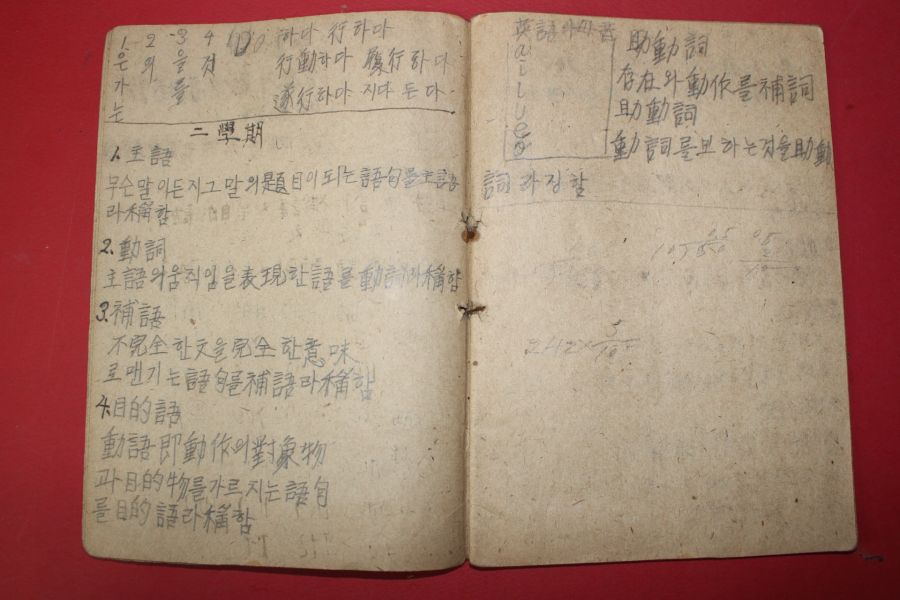 1 2 3 4 하다 行하다
은 의 을 저
가 를 行動하다 履行하다
는 遂行하다 지다 든다.
二學期
1. 主語
무슨말이든지그말의題目이되는語句를主語
라稱함
2. 動詞
主語의움직임을表現한語를動詞라稱함
3. 補語
不完全한文을完全한意味
로맨기는語句를補語라稱함
4. 目的語
動語即動作의對象物
과目的物를가르지는語句
를目的語라稱함
英語
a
i
u
e
o
助動詞
存在와動作를補詞
助動詞
動詞를보하는것을助動
詞라정함
242×